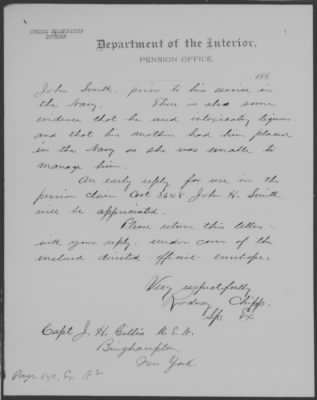 SPECIAL EXAMINATION
DIVISION
Department of the Interior,
PENSION OFFICE,
188
John Smith prior to his service in
the Navy. There is also some
evidence that he used intoxicating liquors
and that his mother had him placed
in the Navy as she was unable to
manage him.
An early reply for use in the
pension claim Cert 3648 John H. Smith
will be appreciated.
Please return this letter
with your reply under cover of the
enclosed directed official envelope.
Very respectfully
Rodney Chipp.
Sp Ex
Capt J. H. Gillis U.S.N.
Binghampton,
New York.
Page